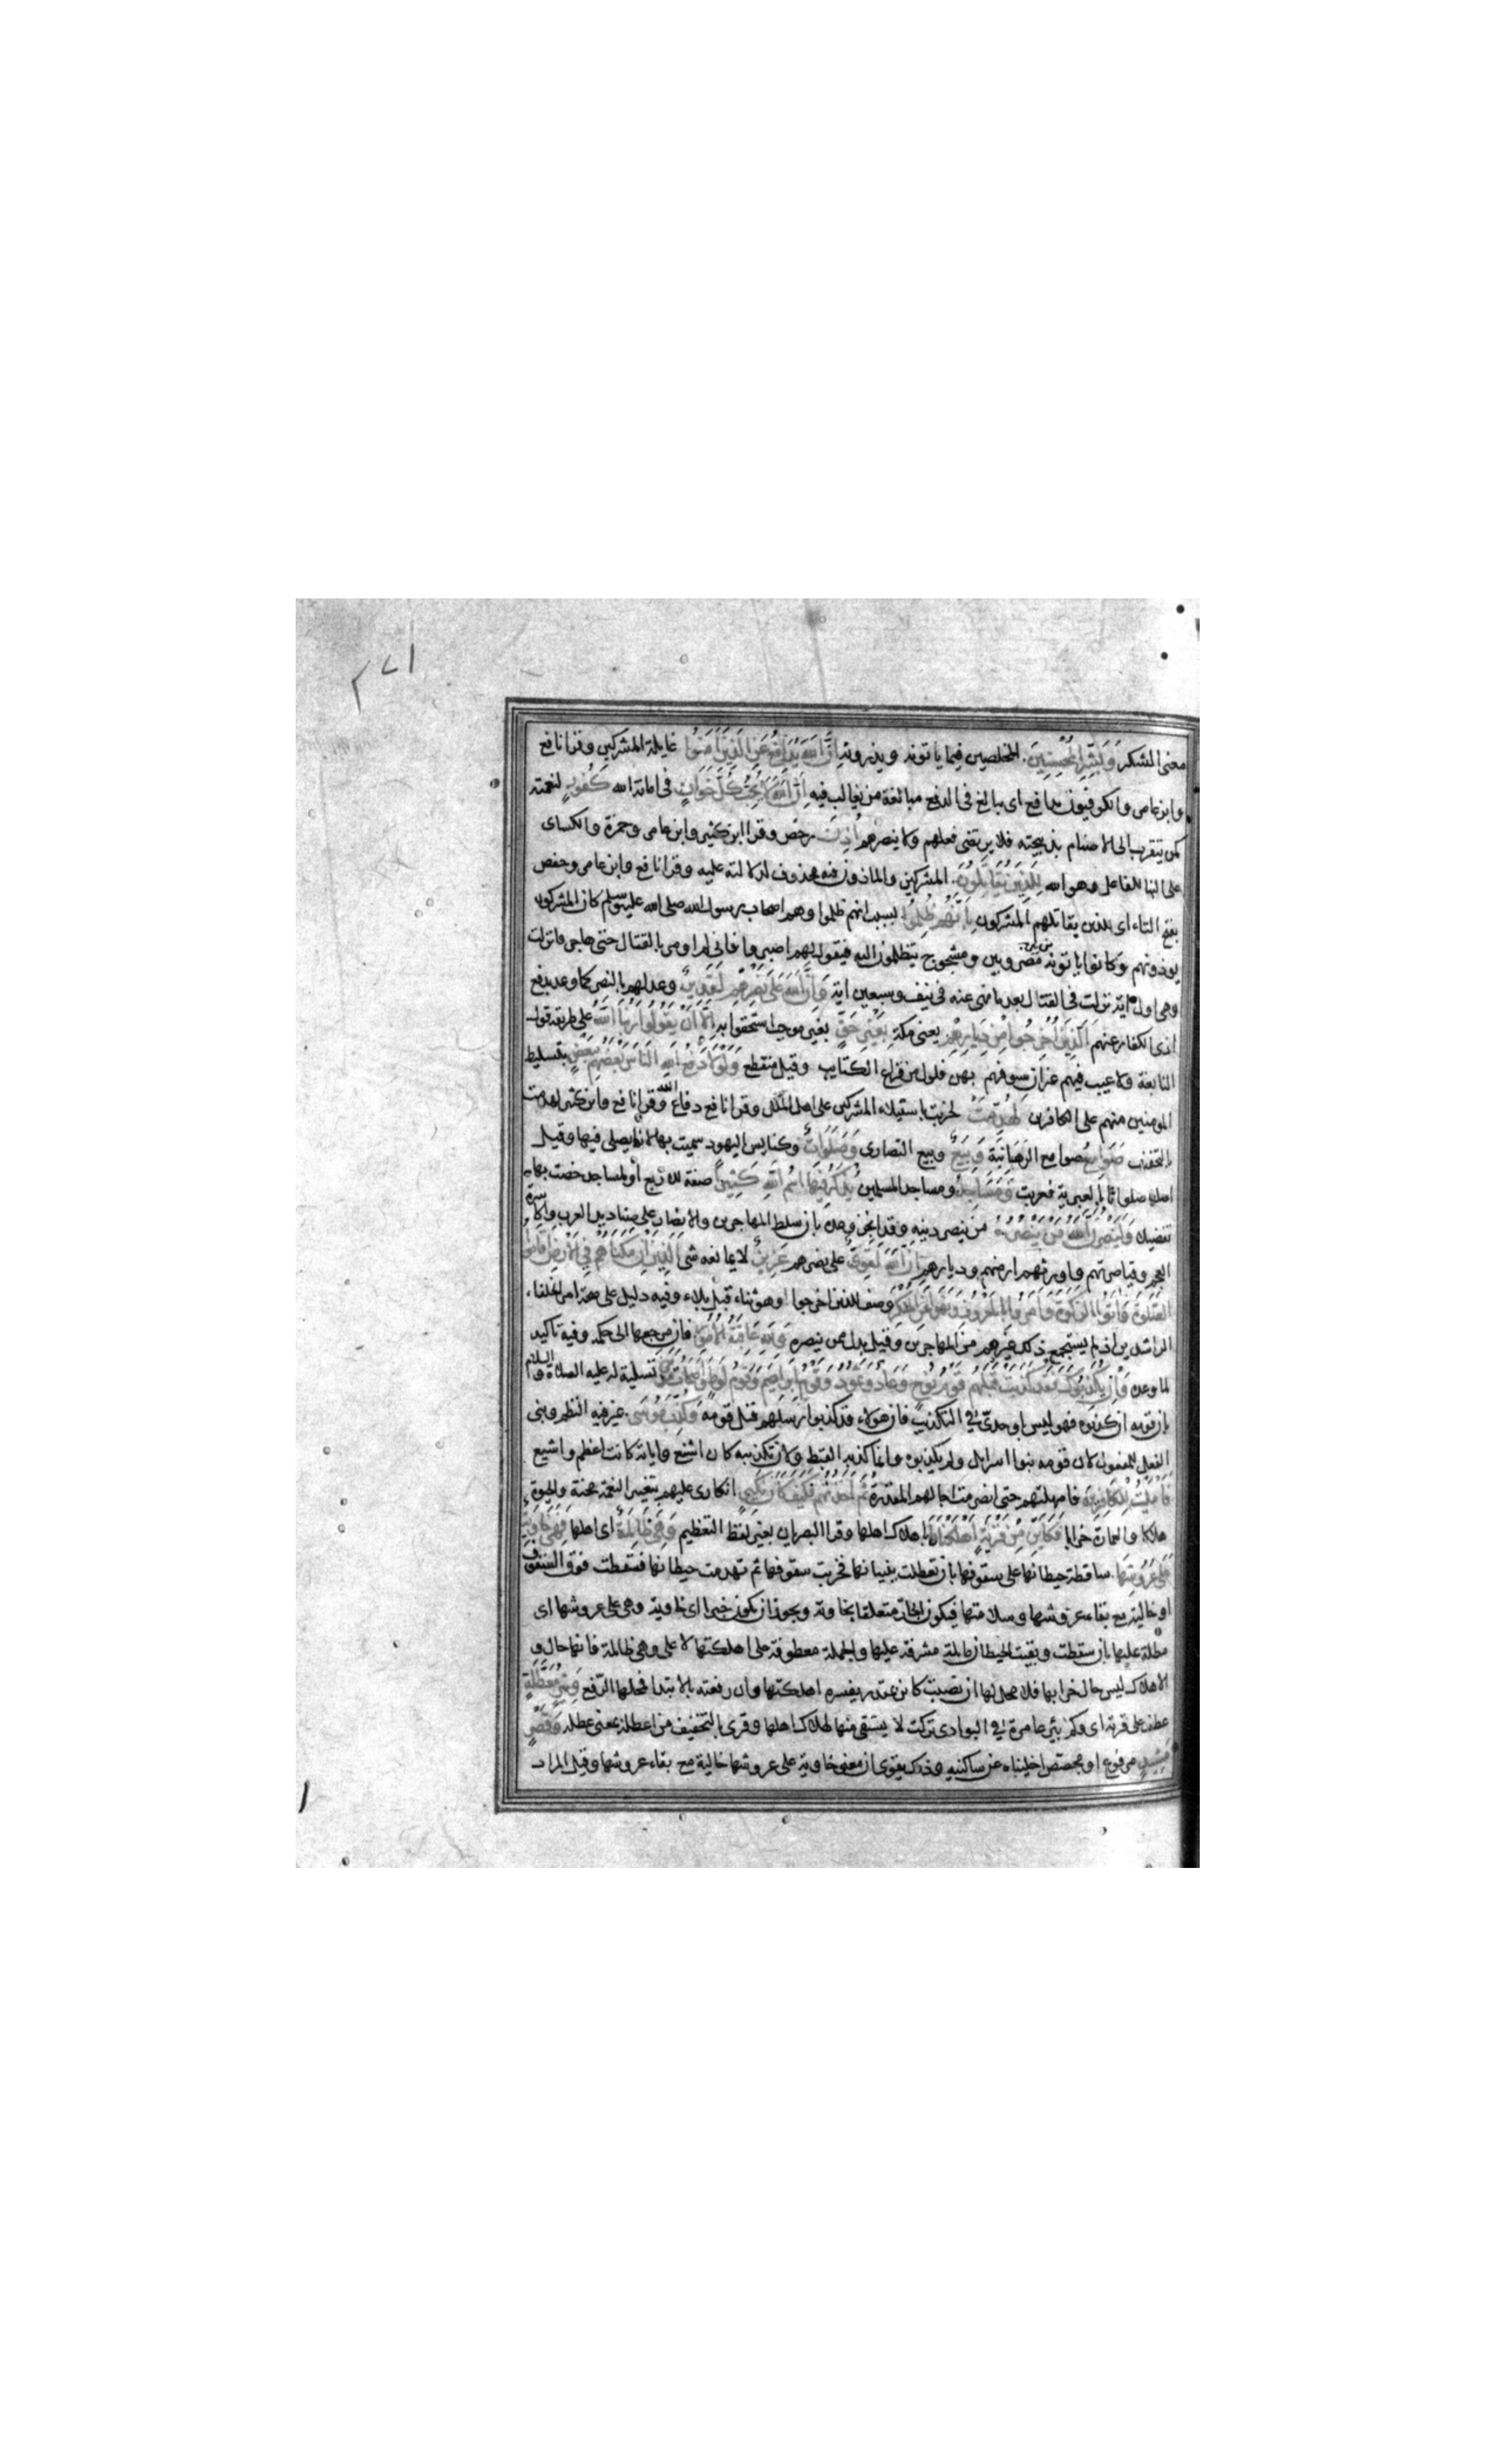 ٢٧١
معنى الشكر وَبَشِّرِ الْمُحْسِنِينَ المخلصين فيما ياتونه ويذرونه اِنَّ اللهَ يُدَافِعُ عَنِ الَّذِينَ اٰمَنُوا غايلة المشركين وقرا نافع
وابن عامر والكوفيون يدافع اى يبالغ فى الدفع مبالغة من يغالب فيه اِنَّ اللهَ لَا يُحِبُّ كُلَّ خَوَّانٍ فى امانة الله كَفُورٍ لنعمته
كمن يتقرب الى الاصنام بذبيحته فلا يرتضى فعلهم ولا ينصرهم اُذِنَ رخص وقرا ابن كثير وابن عامر وحمزة والكساى
على البنا للفاعل وهو الله لِلَّذِينَ يُقَاتَلُونَ المشركين والماذون فيه محذوف لدلالته عليه وقرا نافع وابن عامر وحفص
بفتح التاء اى الذين يقاتلهم المشركون بِاَنَّهُمْ ظُلِمُوا بسبب انهم ظلموا وهم اصحاب رسول الله صلى الله عليه وسلم كان المشركون
يوذونهم وكانوا ياتونه من بين مضروبين ومشجوج يتظلمون اليه فيقول لهم اصبروا فانى لم اومر بالقتال حتى هاجر فانزلت
وهى اول اية نزلت فى القتال بعد ما نهى عنه فى نيف وسبعين اية وَاِنَّ اللهَ عَلَى نَصْرِهِمْ لَقَدِيرٌ وعد لهم بالنصر كما وعد بدفع
اذى الكفار عنهم اَلَّذِينَ اُخْرِجُوا مِنْ دِيَارِهِمْ يعنى مكة بِغَيْرِ حَقٍّ بغير موجب استحقوا به اِلَّا اَنْ يَقُولُوا رَبُّنَا اللهُ على طريقة قول
النابغة ولا عيب فيهم غير ان سيوفهم بهن فلول من قراع الكتايب وقيل منقطع وَلَوْلَا دَفْعُ اللهِ النَّاسَ بَعْضَهُمْ بِبَعْضٍ بتسليط
المومنين منهم على الكافرين لَهُدِّمَتْ لخربت باستيلاء المشركين على اهل الملل وقرا نافع دفاع الله وقرا نافع وابن كثير لهدمت
بالتخفيف صَوَامِعُ صوامع الرهبانية وَبِيَعٌ وبيع النصارى وَصَلَوَاتٌ وكنايس اليهود سميت بها لانها يصلى فيها وقيل
اصلها صلوتا بالعبرية فعربت وَمَسَاجِدُ ومساجد المسلمين يُذْكَرُ فِيهَا اسْمُ اللهِ كَثِيرًا صفة للاربع او لمساجد خصت بها
تفضيلا وَلَيَنْصُرَنَّ اللهُ مَنْ يَنْصُرُهُ من ينصر دينه وقد انجز وعده بان سلط المهاجرين والانصار على صناديد العرب واكاسرة
العجم وقياصرتهم واورثهم ارضهم وديارهم اِنَّ اللهَ لَقَوِىٌّ على نصرهم عَزِيزٌ لا يمانعه شى اَلَّذِينَ اِنْ مَكَّنَّاهُمْ فِي الْاَرْضِ اَقَامُوا
الصَّلٰوةَ وَاٰتَوُا الزَّكٰوةَ وَاَمَرُوا بِالْمَعْرُوفِ وَنَهَوْا عَنِ الْمُنْكَرِ وصف للذين اخرجوا وهو ثناء قبل بلاء وفيه دليل على صحة امر الخلفا
الراشدين اذ لم يستجمع ذلك غيرهم من المهاجرين وقيل بدل ممن ينصره وَلِلّٰهِ عَاقِبَةُ الْاُمُورِ فان مرجعها الى حكمه وفيه تاكيد
لما وعده وَاِنْ يُكَذِّبُوكَ فَقَدْ كَذَّبَتْ قَبْلَهُمْ قَوْمُ نُوحٍ وَعَادٌ وَثَمُودُ وَقَوْمُ اِبْرَاهِيمَ وَقَوْمُ لُوطٍ وَاَصْحَابُ مَدْيَنَ تسلية له عليه الصلاة والسلام
بان قومه ان كذبوه فهو ليس باوحدىّ فى التكذيب فان هولاء قد كذبوا رسلهم قبل قومه وَكُذِّبَ مُوسَى غير فيه النظم وبنى
الفعل للمفعول لان قومه بنوا اسرايل ولم يكذبوه وانما كذبه القبط ولان تكذيبه كان اشنع واياته كانت اعظم واشيع
فَاَمْلَيْتُ لِلْكَافِرِينَ فامهلتهم حتى انصرمت اجالهم المقدرة ثُمَّ اَخَذْتُهُمْ فَكَيْفَ كَانَ نَكِيرِ انكارى عليهم بتغيير النعمة محنة والحيوة
هلاكا والعمارة خرابا فَكَاَيِّنْ مِنْ قَرْيَةٍ اَهْلَكْنَاهَا باهلاك اهلها وقرا البصريان بغير لفظ التعظيم وَهِىَ ظَالِمَةٌ اى اهلها فَهِىَ خَاوِيَةٌ
عَلَى عُرُوشِهَا ساقطة حيطانها على سقوفها بان تعطلت بنيانها فخربت سقوفها ثم تهدمت حيطانها فسقطت فوق السقوف
او خالية مع بقاء عروشها وسلامتها فيكون الجار متعلقا بخاوية ويجوز ان يكون خبرا اى خاوية وهى على عروشها اى
مطلة عليها بان سقطت وبقيت الحيطان مايلة مشرفة عليها والجملة معطوفة على اهلكتها لا على وهى ظالمة فانها حال و
الاهلاك ليس حال خرابها فلا محل لها ان نصبت كاين بمقدر يفسره اهلكتها وان رفعته بالابتدا فمحلها الرفع وَبِئْرٍ مُعَطَّلَةٍ
عطف على قرية اى وكم بئر عامرة فى البوادى تركت لا يستقى منها لهلاك اهلها وقرى بالتخفيف من اعطله بمعنى عطله وَقَصْرٍ
مَشِيدٍ مرفوع او مجصص اخليناه عن ساكنيه وذلك يقوى ان معنى خاوية على عروشها خالية مع بقاء عروشها وقيل المراد